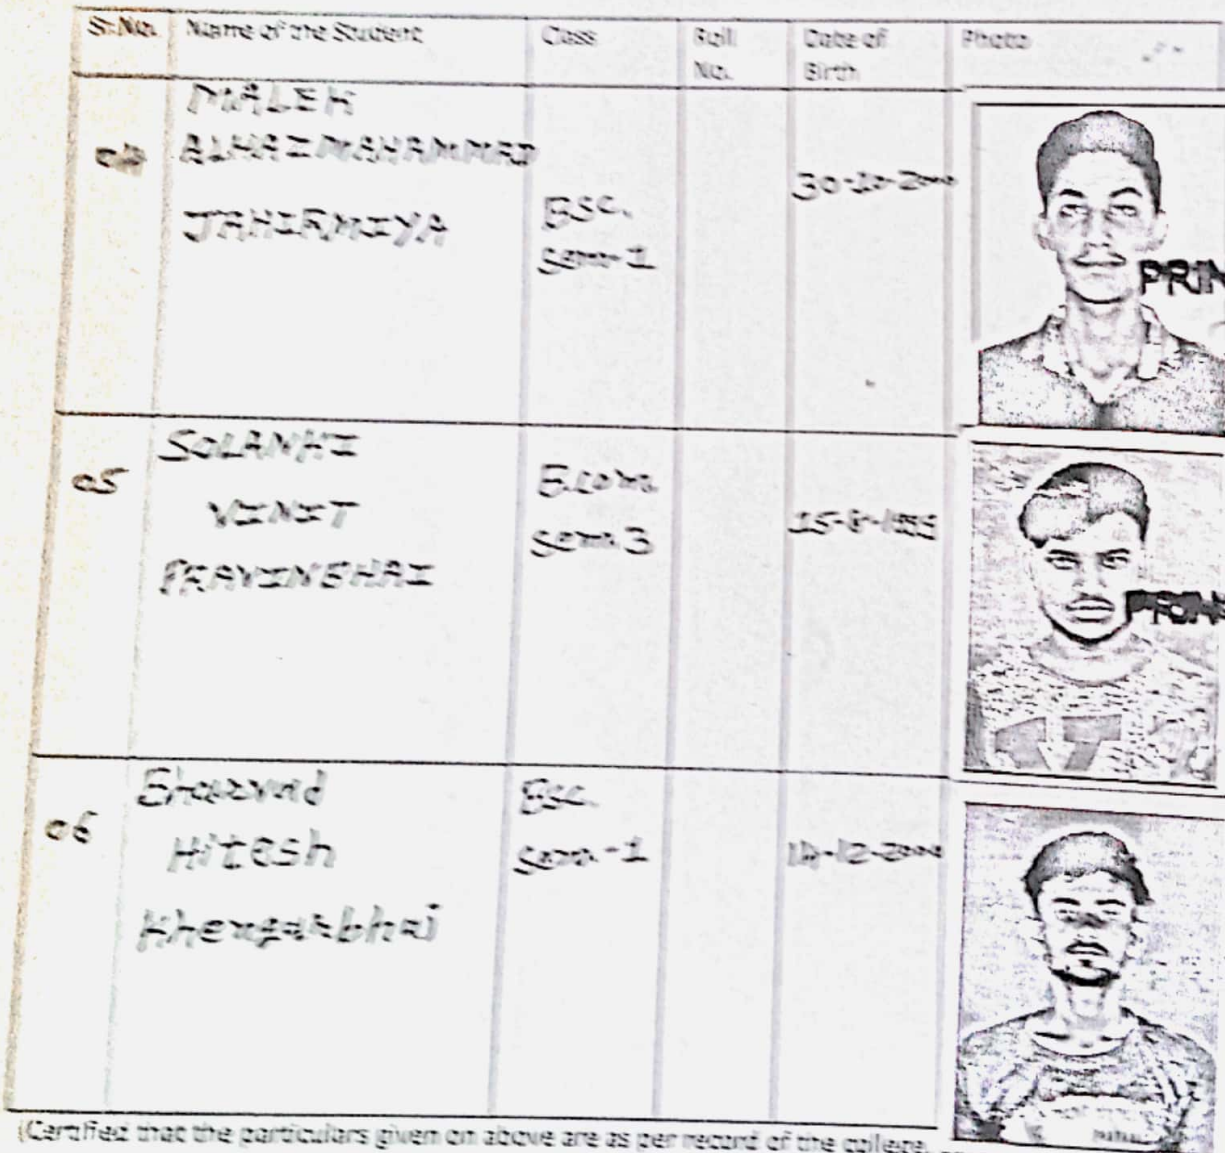 Sr. No. Name of the Student Class Roll No. Date of Birth Photo
04 MALEK
ALHAZMAHAMMAD
JAHIRMIYA
BSC.
Sem-1
30-10-2000
PRIN
05 SOLANKI
VINIT
PRAVINBHAI
B.com
Sem 3
15-8-1999
PRIN
06 Bharvad
Hitesh
Khengarbhai
BSC.
Sem-1
14-12-2000
(Certified that the particulars given on above are as per record of the college.